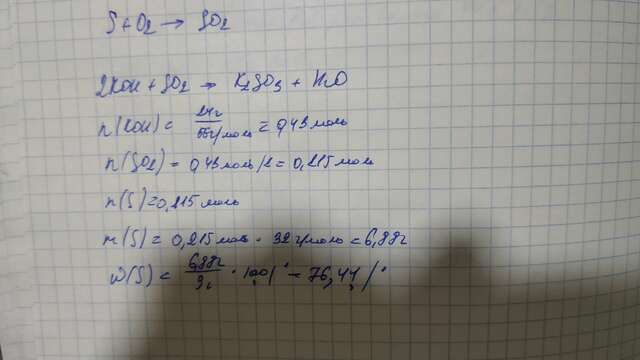 S+O2 → SO2
2KOH + SO2 → K2SO3 + H2O
n(KOH) = 24г/56г/моль = 0,43 моль
n(SO2) = 0,43 моль/2 = 0,215 моль
n(S) = 0,215 моль
m(S) = 0,215 моль · 32 г/моль = 6,88г
ω(S) = 6,88г/9г · 100% = 76,44%